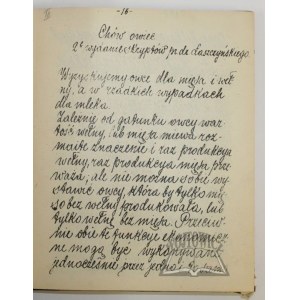 -16-
Chów owiec
Wyzyskujemy owce dla mięsa i weł-
ny, a w rzadkich wypadkach
dla mleka.
Zależnie od gatunku owcy war-
tość wełny, lub mięsa miewa roz-
maite znaczenie i raz produkcja
wełny, raz produkcja mięsa prze-
waża, ale nie można sobie wy-
stawić owcy, która by tylko mię-
so bez wełny produkowała, lub
tylko wełnę bez mięsa. Przeciw-
nie obie te funkcje ekonomicz-
ne mogą być wykonywane
jednocześnie przez jedno i to samo